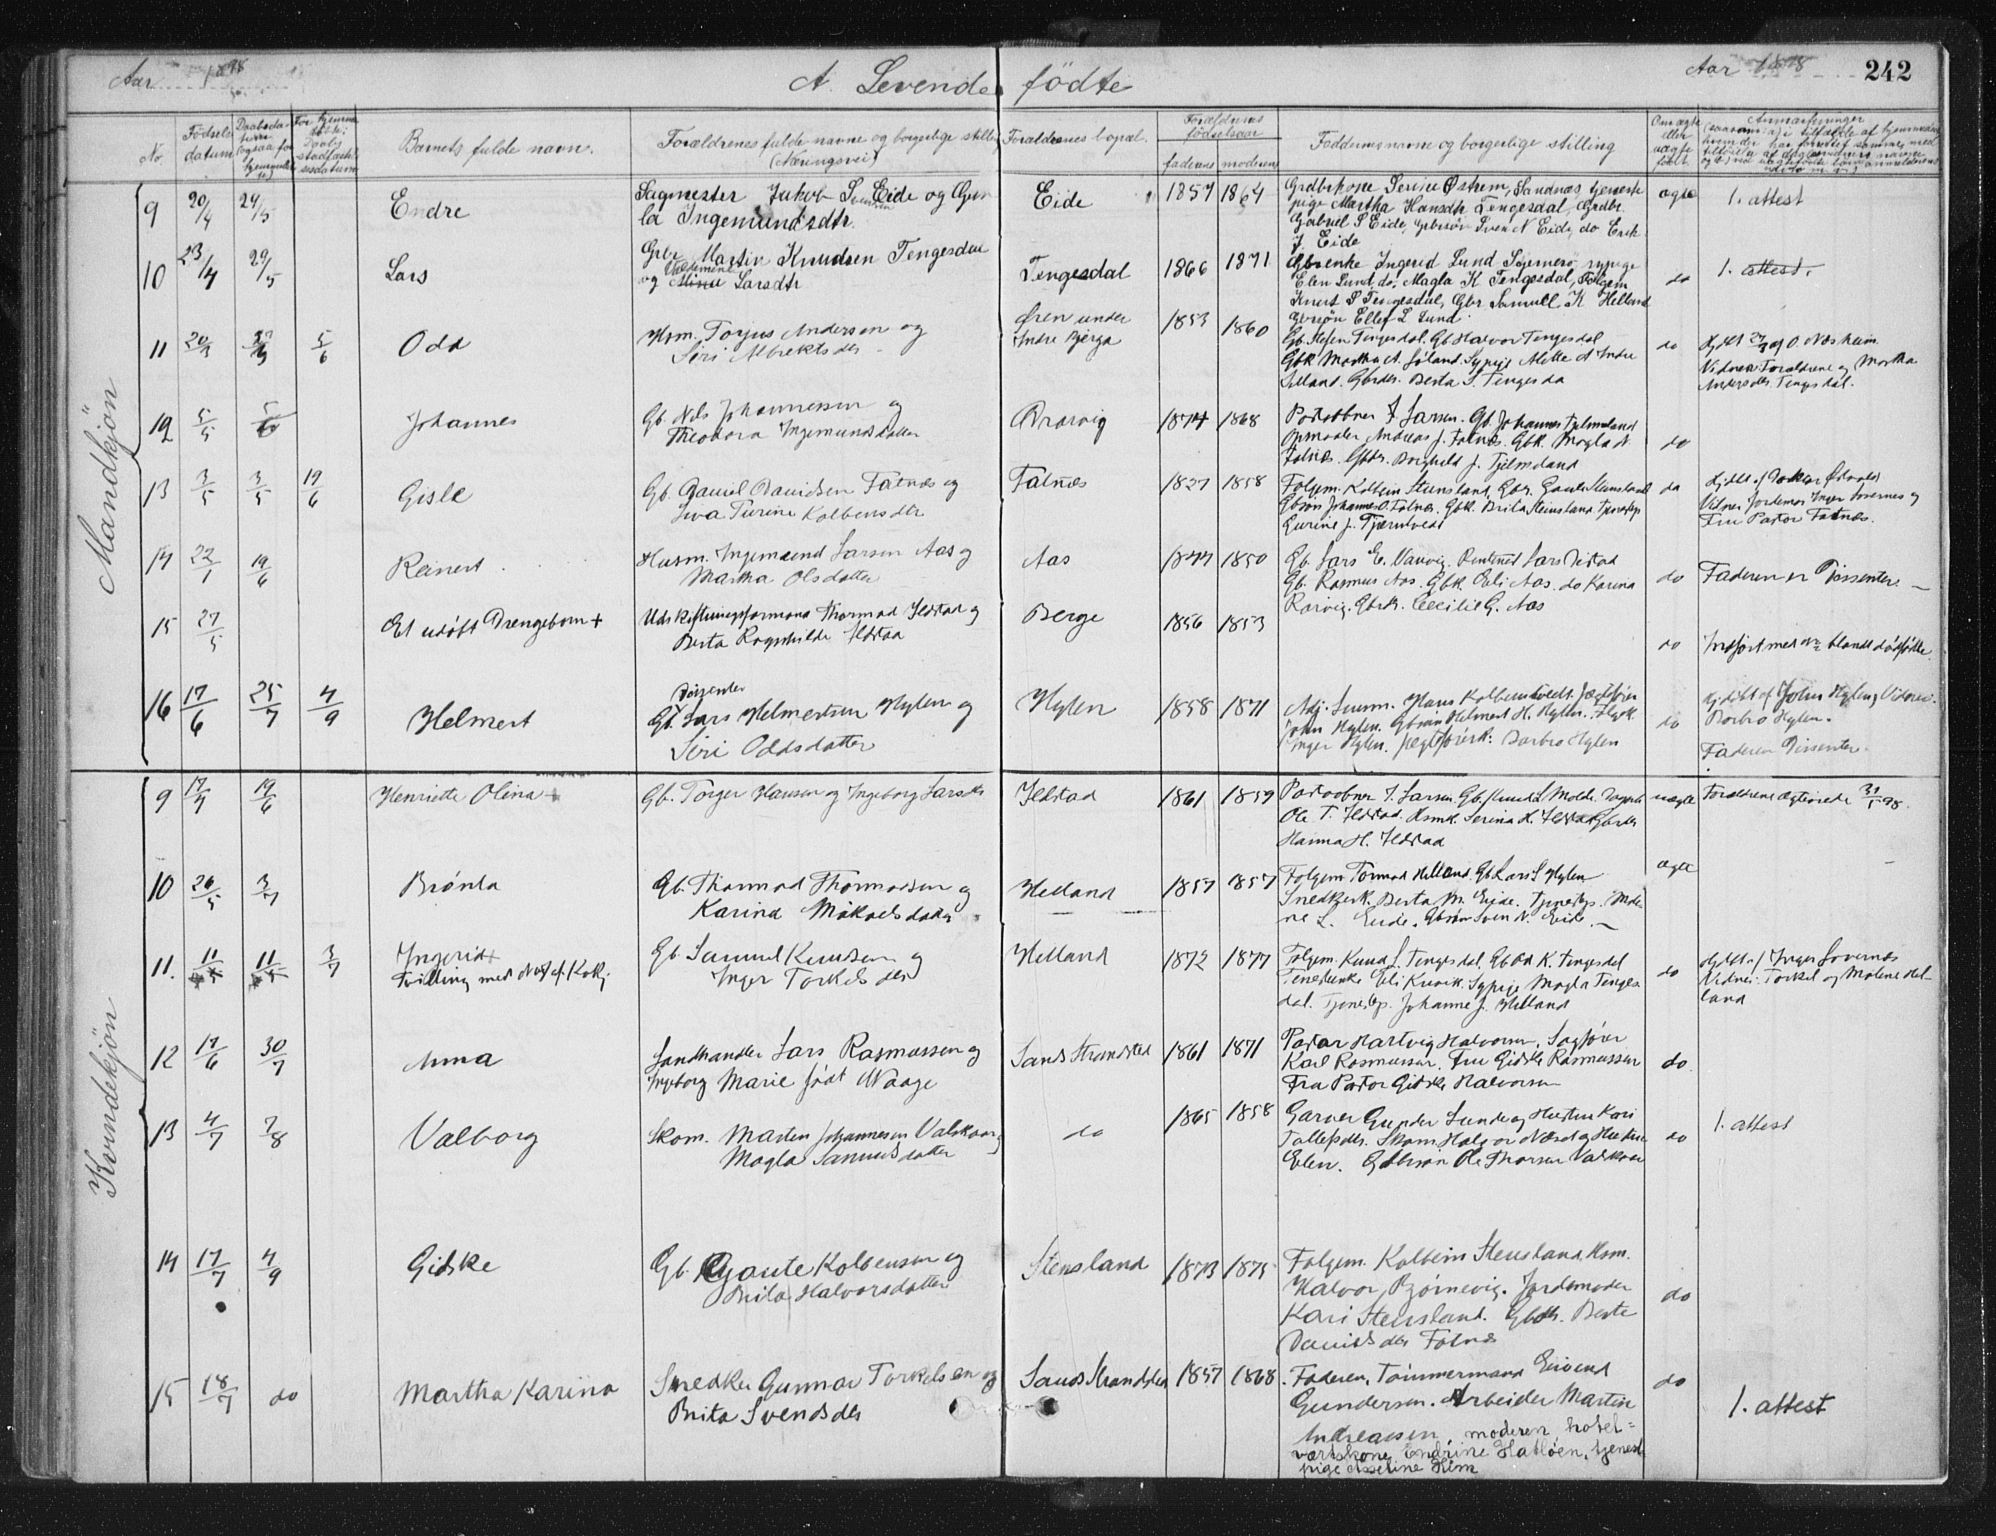 Aar 1898
A. Levende fødte
Aar 1898
242
No.
Fødsels datum
Barnets fulde navn.
Forældrenes fulde navne og borgerlige stilling (Næringsvei)
Forældrenes bopæl.
Forældrenes fødselsaar
faderens moderens
Faddernes navne og borgerlige stilling
Om ægte eller uægte født
Anmærkninger
Mandkjön
9 20/4 29/5 Endre
Sagmester Jakob Svendsen Eide og Gun
la Ingemundsdtr.
Eide 1857 1864
Grdbrkone Serine Østrem, Sandnæs tjeneste
pige Martha Hansdtr Tengesdal, Grdbr.
Gabriel S Eide, Gbrsøn Sven N Eide, do Erik
J. Eide
ægte 1. attest
10 23/4 29/5 Lars
Gbr Martin Knudsen Tengesdal
og Valdemine Larsdtr
Tengesdal 1866 1871
Gbrenke Ingerid Lund Stjernerö, sypige
Elen Lund, do. Magla K Tengesdal, Folgem
Knut S Tengesdal, Gbr Samuel K Helland
Gbrsøn Ellef L Lund
do 1. attest.
11 20/3 5/6 Odd
Hsm. Torjus Andersen og
Siri Albrektsdtr
Øren under
Indre Bjerga 1853 1860
Gb. Stefen Tengesdal. Gb Halvor Tengesdal
Gbk Martha A. Jøland. Sypige Mette A Indre
Lilland. Gbrdr. Berta S. Tengesda
do Hjdbt 27/3 af O. Næsheim
Vidner: Forældrene og Martha
Andersdtr. Tengesdal.
12 5/5 5/6 Johannes
Gb. Nils Johannessen og
Theodora Ingemundsdatter
Qvarvig 1874 1868
Postaabner J. Larsen. Gb. Johannes Tjelmeland
Opmaaler Andreas J. Fatnæs. Gbk. Magla N
Fatnæs. Gbdr. Borghild J. Tjelmeland
do
13 3/5 3/5 19/6 Gisle
Gb. Daniel Davidsen Fatnæs og
Liva Turine Kolbensdtr
Fatnæs 1827 1858
Folgem. Kolbein Stensland. Gbr. Gaute Stensland
Gbsøn Johannes O. Fatnæs. Gbk. Brita Steinsland Tjenestep
Gurine J. Tjerntveit
do
Vidner Jordemor Inger Lovernes og
Fru Pastor Fatnæs.
14 22/1 19/6 Reinert
Husm. Ingemund Larsen Aas og
Martha Olsdatter
Aas 1847 1850
Gb. Lars E. Vanvig.
Gb. Rasmus Aas. Gbk. Eli Aas. do Karina
Rarvig. Gbrdr. Cecilie G. Aas
do Faderen er Dissenter. —
15 27/5 Et udøbt Drengebarn +
Udskiftningsformand Thormod Ilstad og
Berta Ragnhilde Ilstad
Berge 1856 1853
do Indført med No 2 blandt dødfødte.
16 17/6 25/7 4/9 Helmert
Dissenter
Gb. Lars Helmertsen Hylen og
Siri Oddsdatter
Hylen 1858 1871
Adj. Lærem. Hans Kolbeinstvedt. Jægtfører
John Hylen. Gbrsøn Helmert H. Hylen.
Inger Hylen. Jægtførerk. Barbro Hylen
do Hjdøbt af John Hylen, Vidner.
Barbro Hylen.
Faderen Dissenter.
Kvindekjön
9 17/4 19/6 Henriette Olina
Gb. Torger Hansen og Ingeborg Larsdtr
Ilstad 1861 1859
Postaabner J. Larsen. Gb. Knud L. Molde.
Ole T. Ilstad. Hsmk. Serina H. Ilstad Gbrdtr
Hanna H. Ilstad
uægte Forældrene ægteviede 31/5 98.
10 26/5 3/7 Brónla
Gb. Thormod Thormodsen og
Karina Mikaelsdatter
Helland 1857 1857
Folgem Tormod Helland. Gb Lars S Hylen
Snedkerk. Berta M. Eide. Tjenestep. Male-
ne L. Eide. Gbrsøn Sven N. Eide. —
ægte
11. 11/5 11/5 3/7 Ingerid +
Tvilling med No 7 af Kvkj.
Gb. Samuel Knudsen og
Inger Torkelsdtr
Helland 1872 1877
Folgem. Knud S. Tengesdal. Gb Od K. Tengesdal
Eli Kvick. Sypige Magla Tenges
dal. Tjenestep. Johanne J. Helland
do Hjdbt af Inger Lovernæs
Vidner: Torkel og Malene Hel-
land
12 17/6 30/7 Anna
Landhandler Lars Rasmussen og
Ingeborg Marie født Waage
Sands Strandsted 1861 1871
Pastor Hartvig Halvorsen, Sagfører
Karl Rasmussen. Fru Gidske Rasmussen
Fru Pastor Gidske Halvorsen
do.
13 4/7 7/8 Valborg
Skom. Marten Johannesen Valskaar og
Magla Samuelsdatter
do 1865 1858
Garver Gunder Lunde og Hustru Kari
Tollefsdtr. Skom. Halvor Næset og Hustru
Elen. Gbrsøn Ole Thorsen Valskaar
do 1. attest
14 17/7 4/9 Gidske
Gb. Gaute Kolbensen og
Brita Halvorsdatter
Stensland 1873 1875
Folgem. Kolbein Stensland. Hsm.
Halvor Bjørnevig. Jordemoder
Kari Stensland. Gbdtr. Berte
Danielsdtr Fatnæs
do
15 18/7 do Martha Karina
Snedker Gunnar Torkelsen og
Brita Svendsdtr
Sands Strandsted 1857 1868
Faderen, Tømmermand Eivind
Gundersen. Arbeider Martin
Andreassen, moderen, hotel-
værtskone Endrine Hatløen, tjenest
pige Asseline Kim
do 1. attest